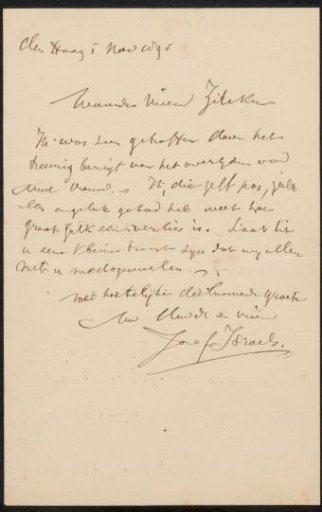 den Haag 5 Nov 1895
Waarde Vriend Zilcken
Ik was zeer getroffen door het
treurig berigt van het overlijden van
Uwe vrouw. Ik, die zelf pas zulk
een ongeluk gehad heb weet hoe
groot zulk een verlies is. Laat het
u een kleine troost zijn dat wij allen
met u medegevoelen.
met hartelijke deelnemende groete
Uw vriend
Jozef Israels.